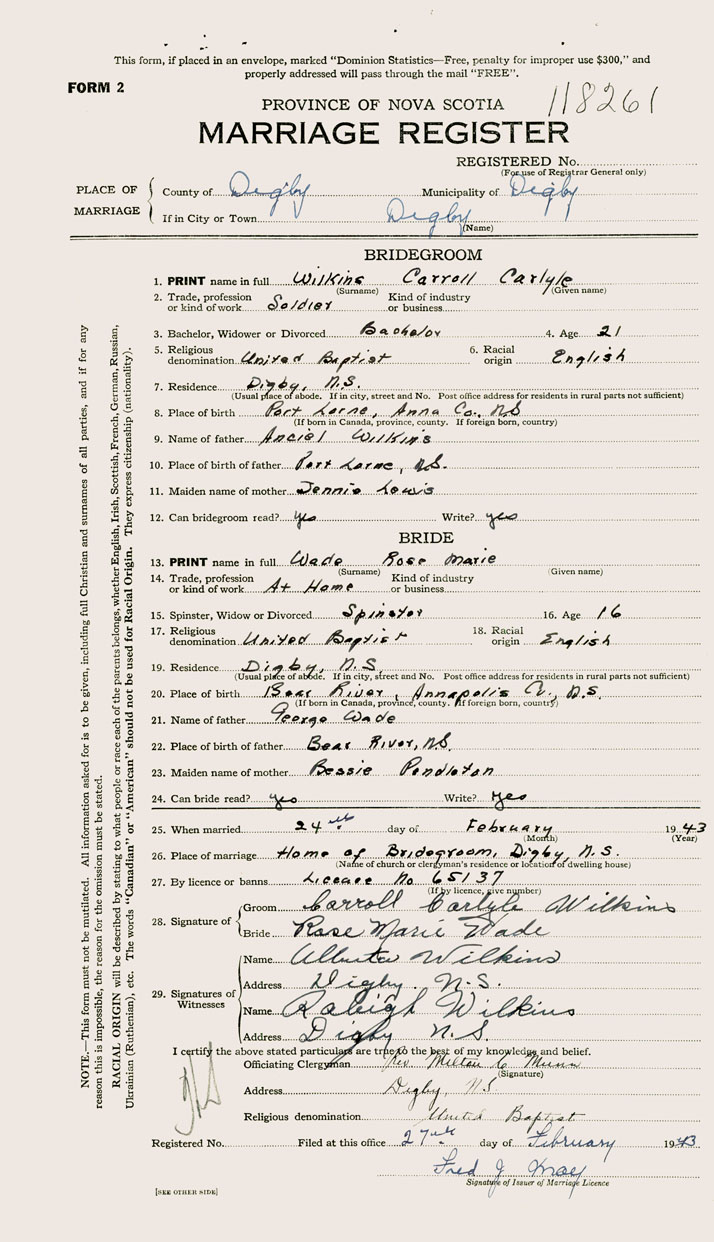 This form, if placed in an envelope, marked "Dominion Statistics—Free, penalty for improper use $300," and
properly addressed will pass through the mail "FREE".
FORM 2
118261
PROVINCE OF NOVA SCOTIA
MARRIAGE REGISTER
REGISTERED No.
(For use of Registrar General only)
PLACE OF MARRIAGE
County of Digby Municipality of Digby
If in City or Town Digby
(Name)
BRIDEGROOM
1. PRINT name in full Wilkins Carroll Carlyle
(Surname) (Given name)
2. Trade, profession or kind of work Soldier Kind of industry or business
3. Bachelor, Widower or Divorced Bachelor 4. Age 21
5. Religious denomination United Baptist 6. Racial origin English
7. Residence Digby, N.S.
(Usual place of abode. If in city, street and No. Post office address for residents in rural parts not sufficient)
8. Place of birth Port Lorne, Anna Co., N.S
(If born in Canada, province, county. If foreign born, country)
9. Name of father Ancial Wilkins
10. Place of birth of father Port Lorne, N.S.
11. Maiden name of mother Jennie Lewis
12. Can bridegroom read? yes Write? yes
BRIDE
13. PRINT name in full Wade Rose Marie
(Surname) (Given name)
14. Trade, profession or kind of work At Home Kind of industry or business
15. Spinster, Widow or Divorced Spinster 16. Age 16
17. Religious denomination United Baptist 18. Racial origin English
19. Residence Digby, N.S.
(Usual place of abode. If in city, street and No. Post office address for residents in rural parts not sufficient)
20. Place of birth Bear River, Annapolis Co., N.S.
(If born in Canada, province, county. If foreign born, country)
21. Name of father George Wade
22. Place of birth of father Bear River, N.S.
23. Maiden name of mother Bessie Pendleton
24. Can bride read? yes Write? yes
25. When married 24th day of February 1943
(Month) (Year)
26. Place of marriage Home of Bridegroom, Digby, N.S.
(Name of church or clergyman's residence or location of dwelling house)
27. By licence or banns Licence No 65137
(If by licence, give number)
28. Signature of
Groom Carroll Carlyle Wilkins
Bride Rose Marie Wade
29. Signatures of Witnesses
Name Alberta Wilkins
Address Digby. N.S.
Name Raleigh Wilkins
Address Digby N.S.
I certify the above stated particulars are true to the best of my knowledge and belief.
Officiating Clergyman Rev Milton C Munn
(Signature)
Address Digby, N.S
Religious denomination United Baptist
Registered No. Filed at this office 27th day of February 1943
Fred J.
Signature of Issuer of Marriage Licence
[SEE OTHER SIDE]
NOTE.—This form must not be mutilated. All information asked for is to be given, including full Christian and surnames of all parties, and if for any
reason this is impossible, the reason for the omission must be stated.
RACIAL ORIGIN will be described by stating to what people or race each of the parents belongs, whether English, Irish, Scottish, French, German, Russian,
Ukrainian (Ruthenian), etc. The words "Canadian" or "American" should not be used for Racial Origin. They express citizenship (nationality).